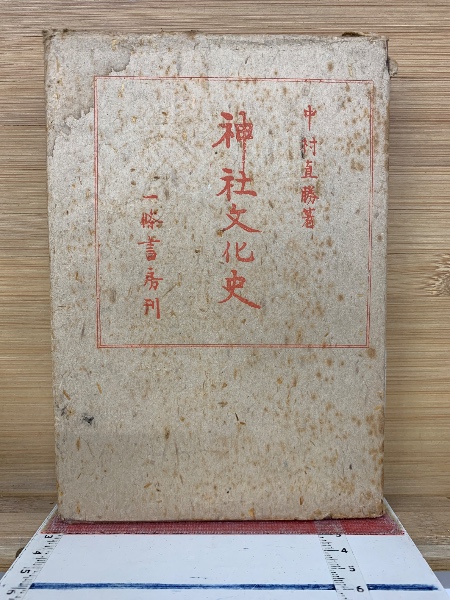 中村直勝著
神社文化史
一條書房刊
3
4
5
6